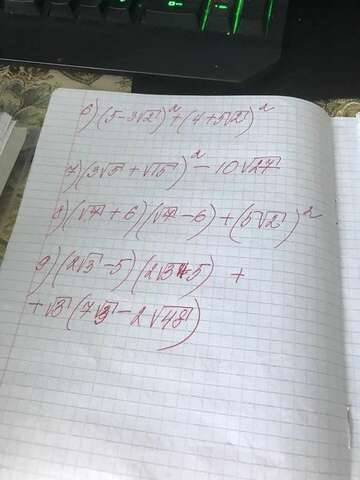 6) (5-3√2)² + (4+5√2)²
7) (3√5 + √15)² - 10√27
8) (√7 + 6)(√7 - 6) + (5√2)²
9) (2√3 - 5)(2√3 + 5) +
+ √3 (7√3 - 2√48)